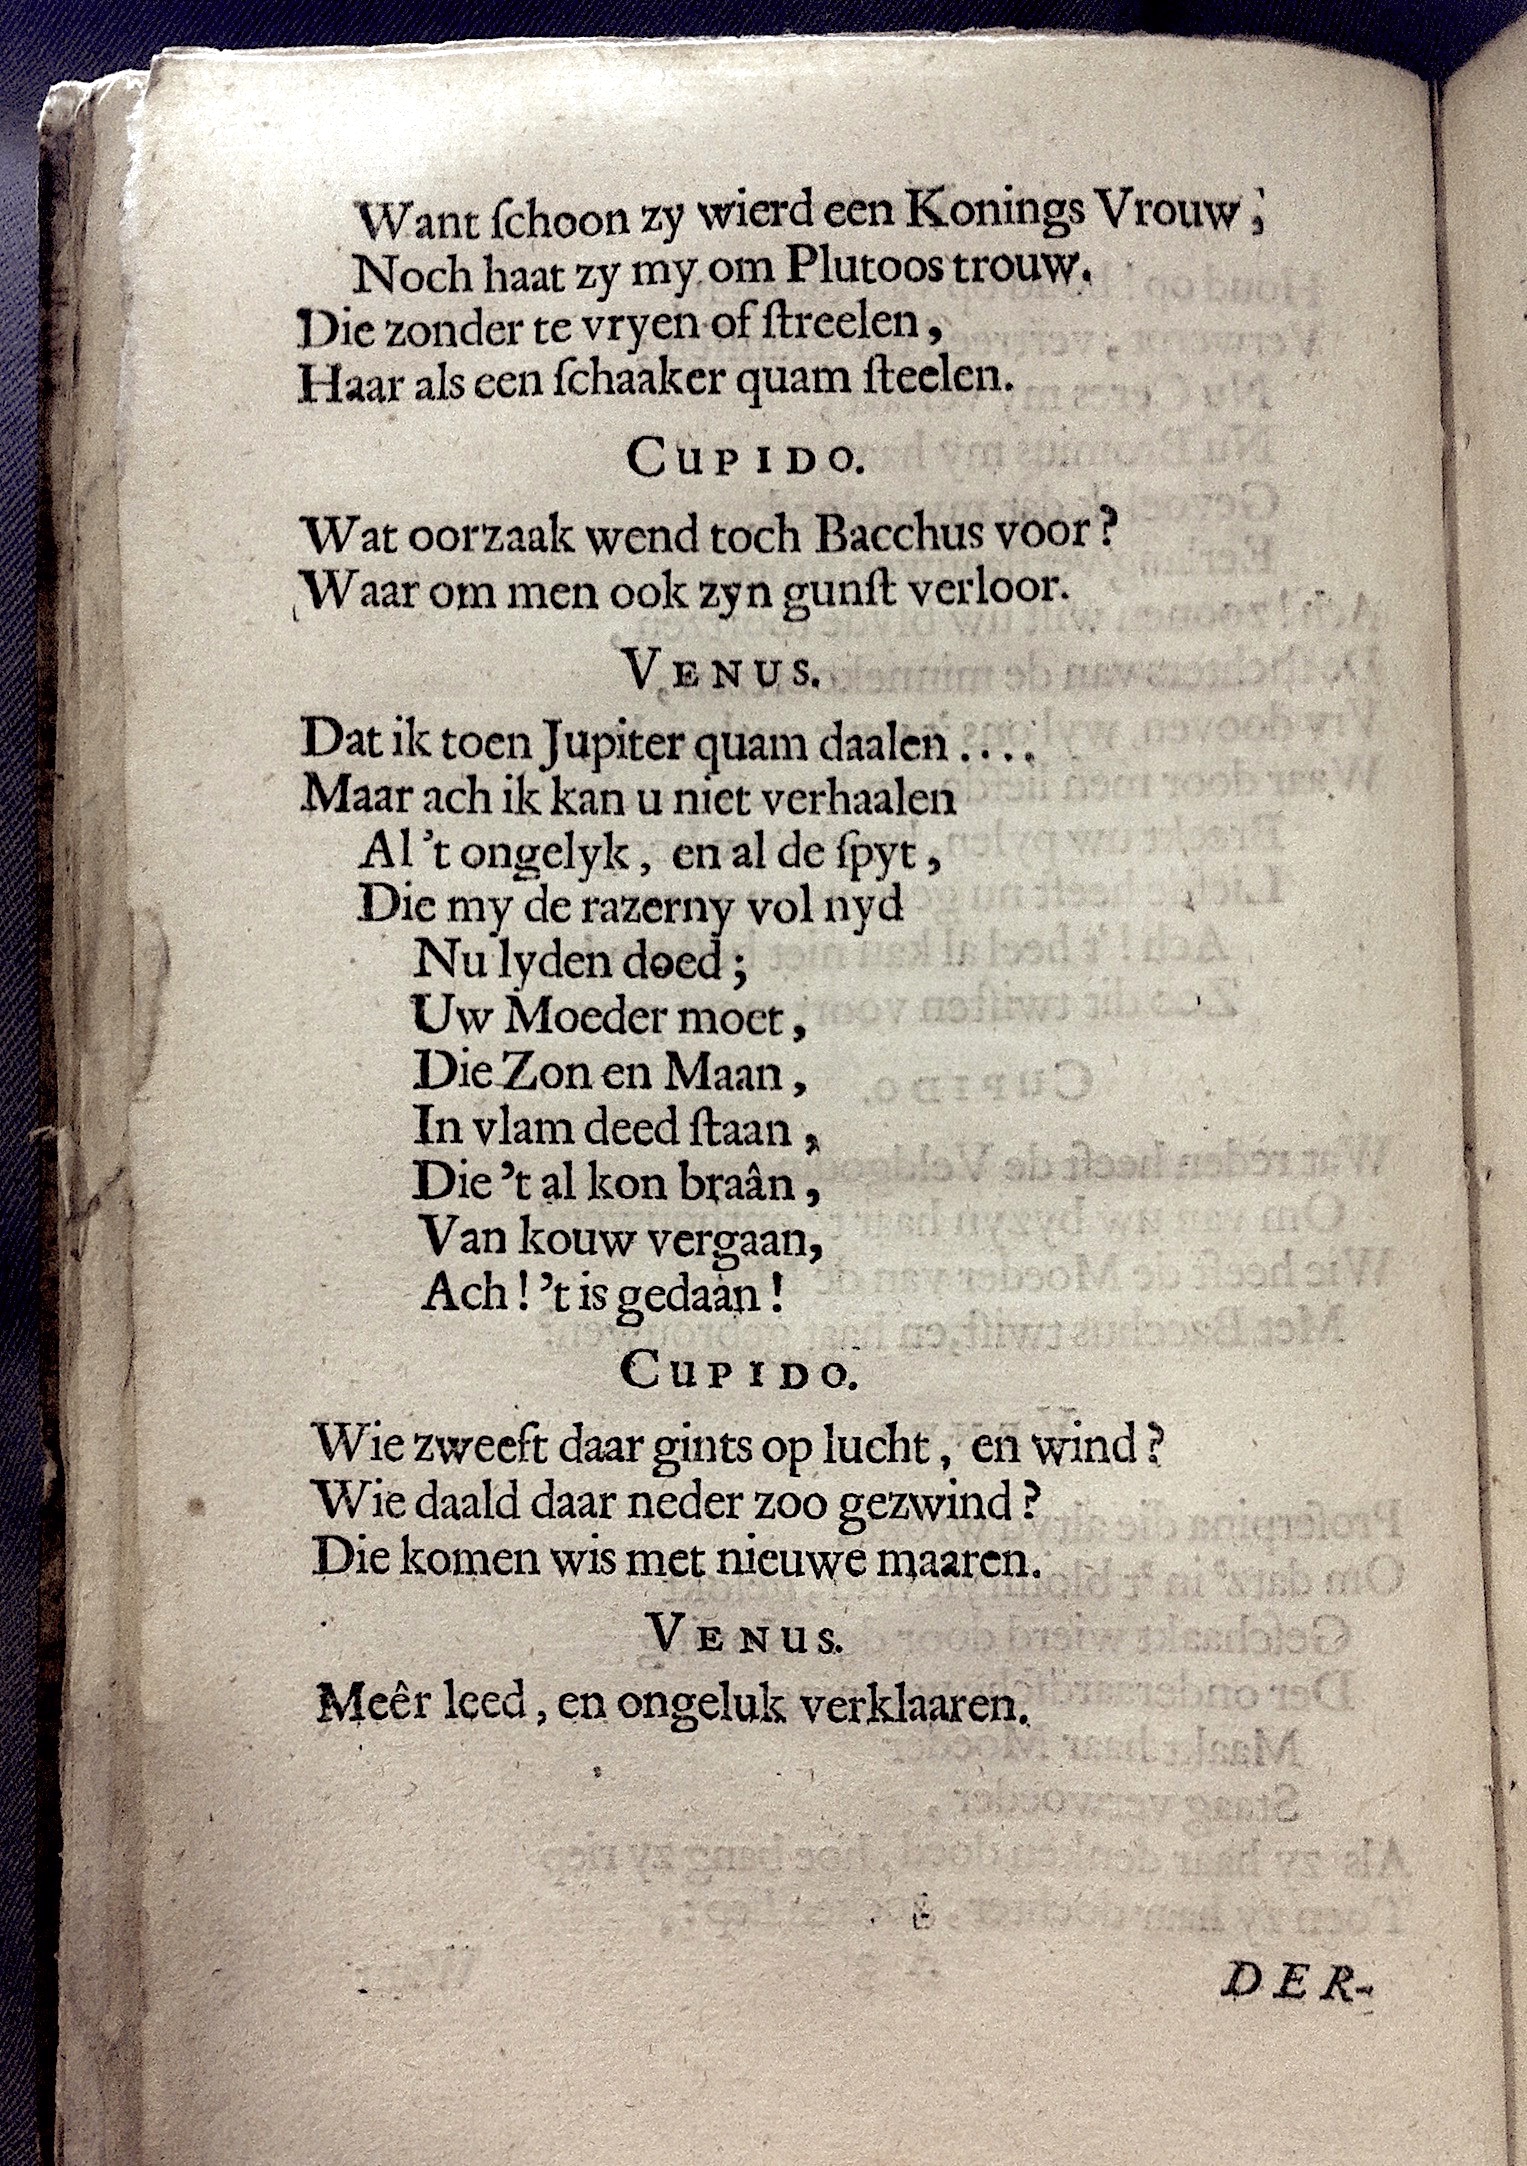 Want ſchoon zy wierd een Konings Vrouw;
Noch haat zy my om Plutoos trouw.
Die zonder te vryen of ſtreelen,
Haar als een ſchaaker quam ſteelen.
CUPIDO.
Wat oorzaak wend toch Bacchus voor?
Waar om men ook zyn gunſt verloor.
VENUS.
Dat ik toen Jupiter quam daalen....
Maar ach ik kan u niet verhaalen
Al 't ongelyk, en al de ſpyt,
Die my de razerny vol nyd
Nu lyden doed;
Uw Moeder moet,
Die Zon en Maan,
In vlam deed ſtaan,
Die 't al kon braân,
Van kouw vergaan,
Ach! 't is gedaan!
CUPIDO.
Wie zweeft daar gints op lucht, en wind?
Wie daald daar neder zoo gezwind?
Die komen wis met nieuwe maaren.
VENUS.
Meêr leed, en ongeluk verklaaren.
DER-